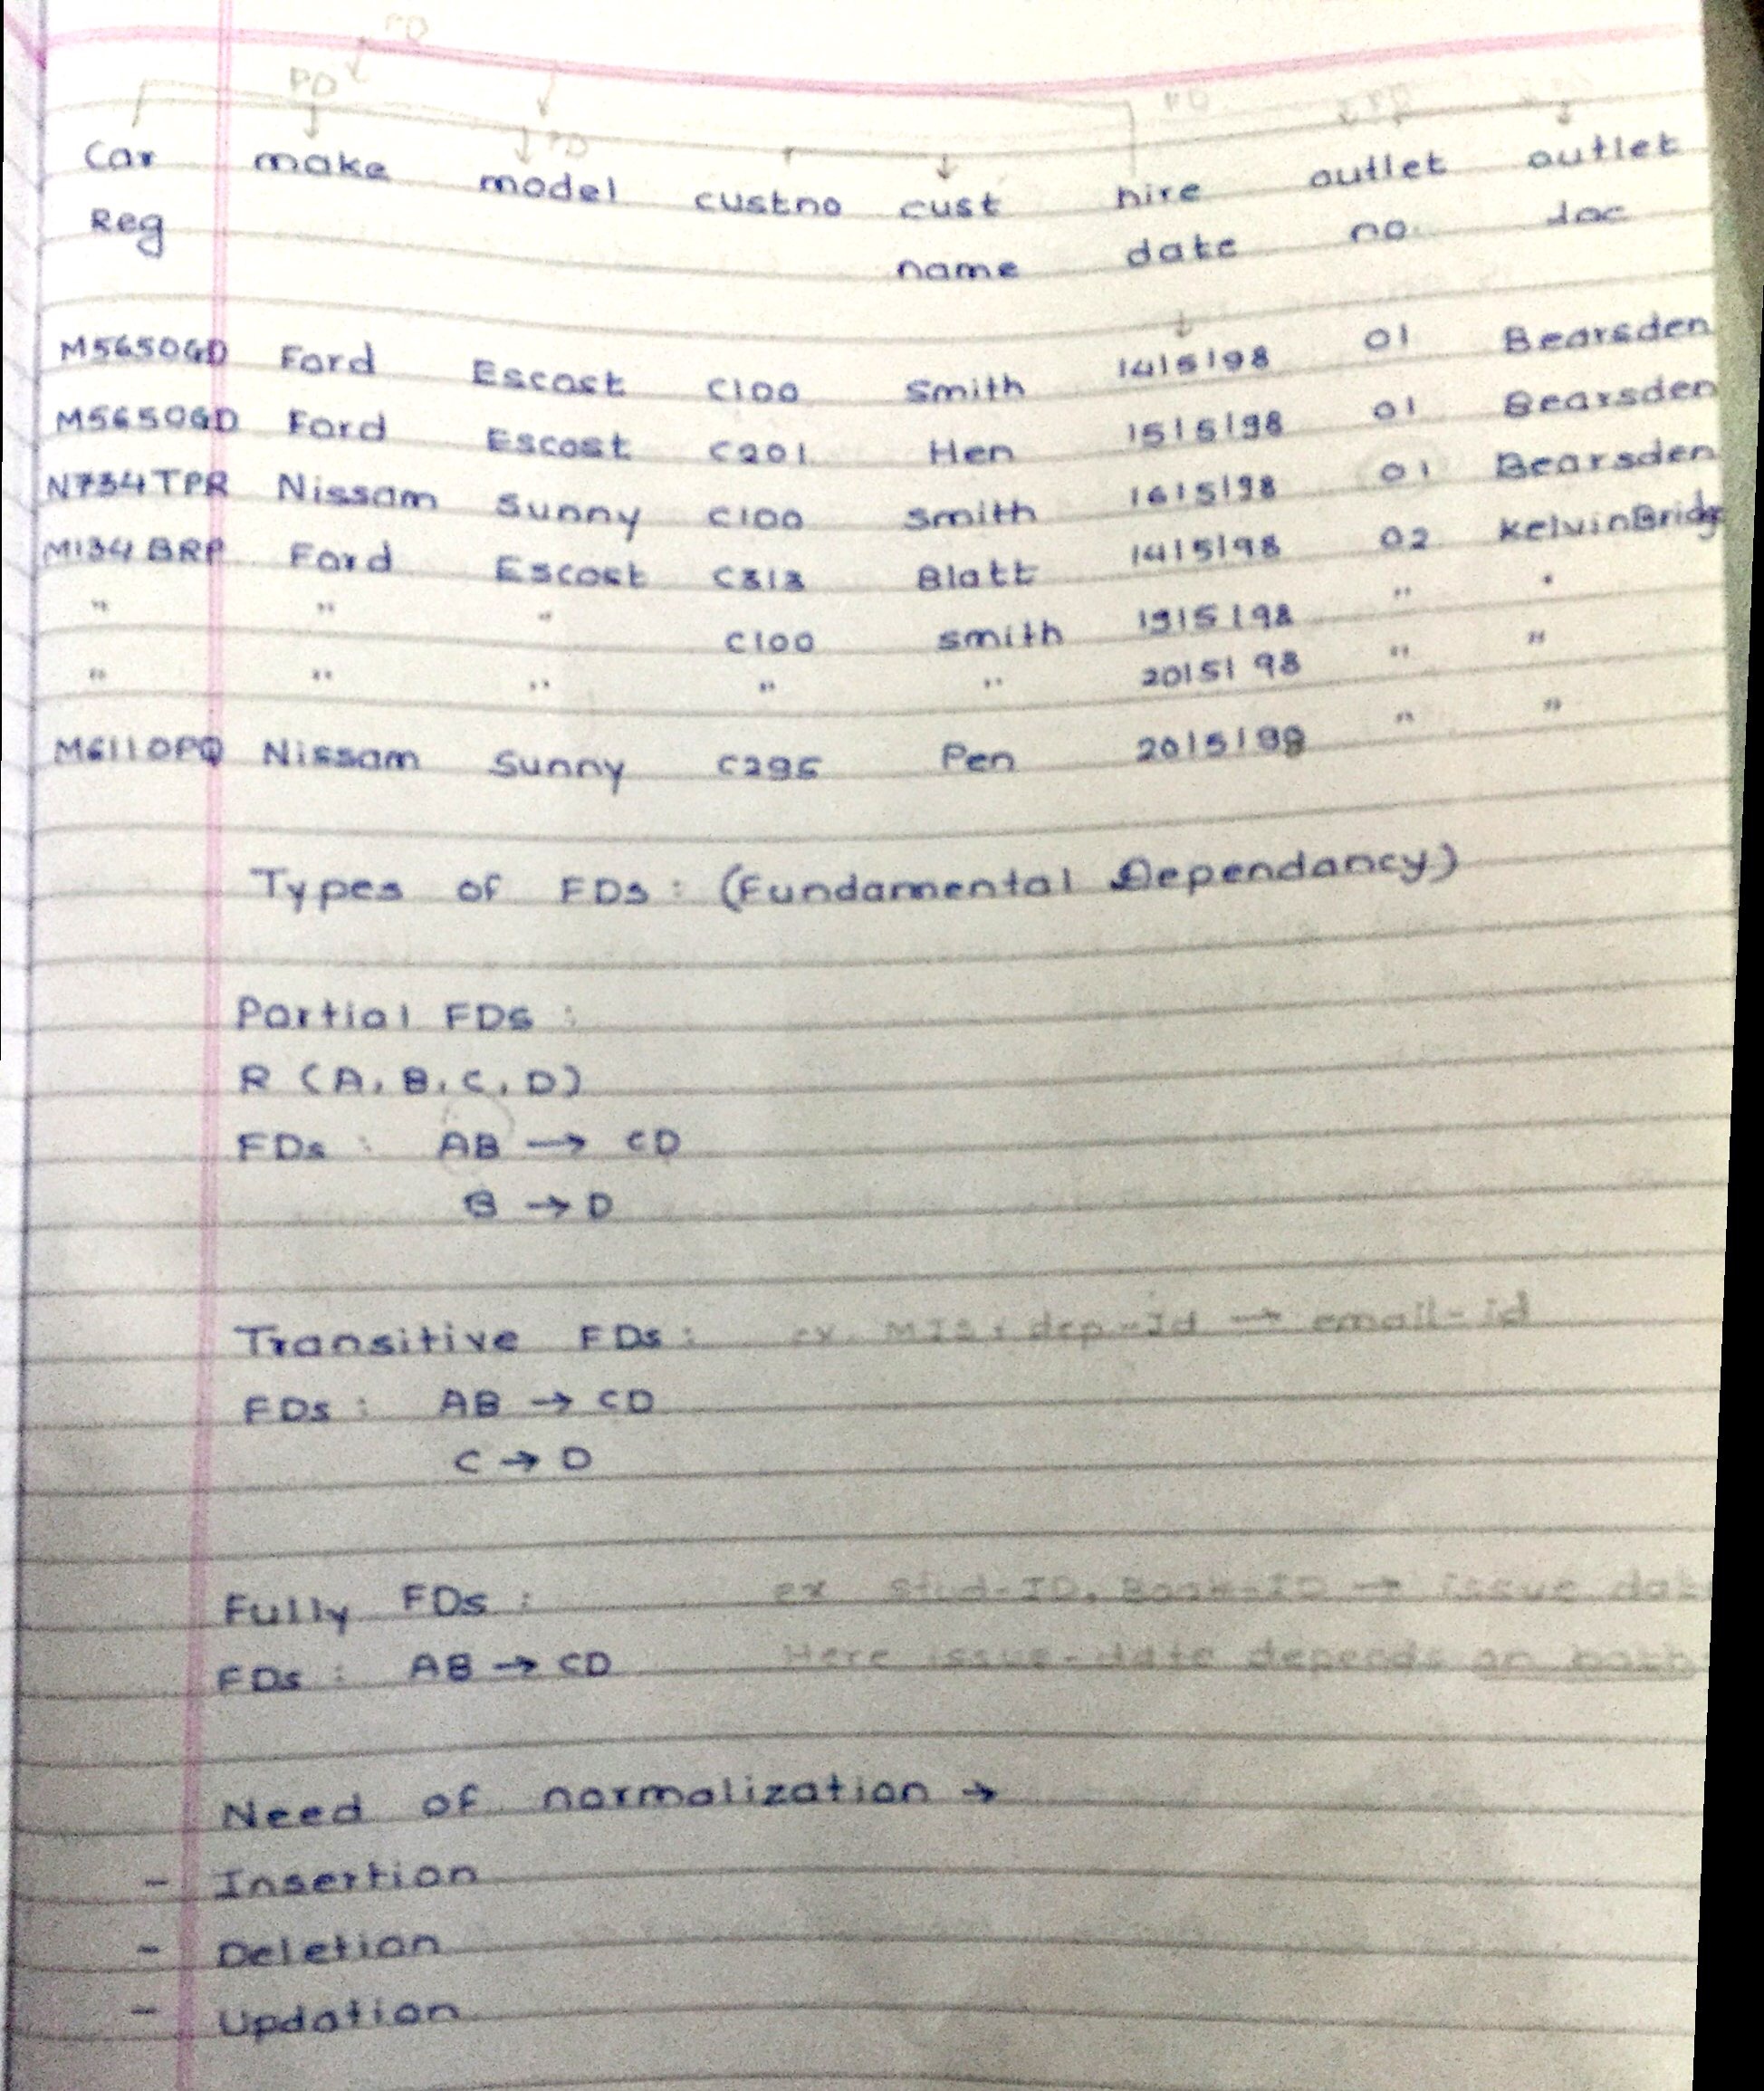 PD
PD
PD
Car make model custno cust hire outlet outlet
Reg name date no. loc
M565OGD Ford Escost C100 Smith 14|5|98 01 Bearsden
M565OGD Ford Escost C201 Hen 15|5|98 01 Bearsden
N734TPR Nissam Sunny C100 Smith 16|5|98 01 Bearsden
M134 BRP Ford Escost C313 Blatt 14|5|98 02 KelvinBridge
" " " C100 smith 19|5|98 " "
" " " " " 20|5|98 " "
M611OPQ Nissam Sunny C295 Pen 20|5|98 " "
Types of FDs : (Fundamental Dependancy)
Partial FDs :
R (A, B, C, D)
FDs : AB → CD
B → D
Transitive FDs : ex. MIS, dep-Id → email-id
FDs : AB → CD
C → D
Fully FDs : ex Stud-ID, Book-ID → issue
FDs : AB → CD Here issue-date depends on both
Need of normalization →
- Insertion
- Deletion
- Updation